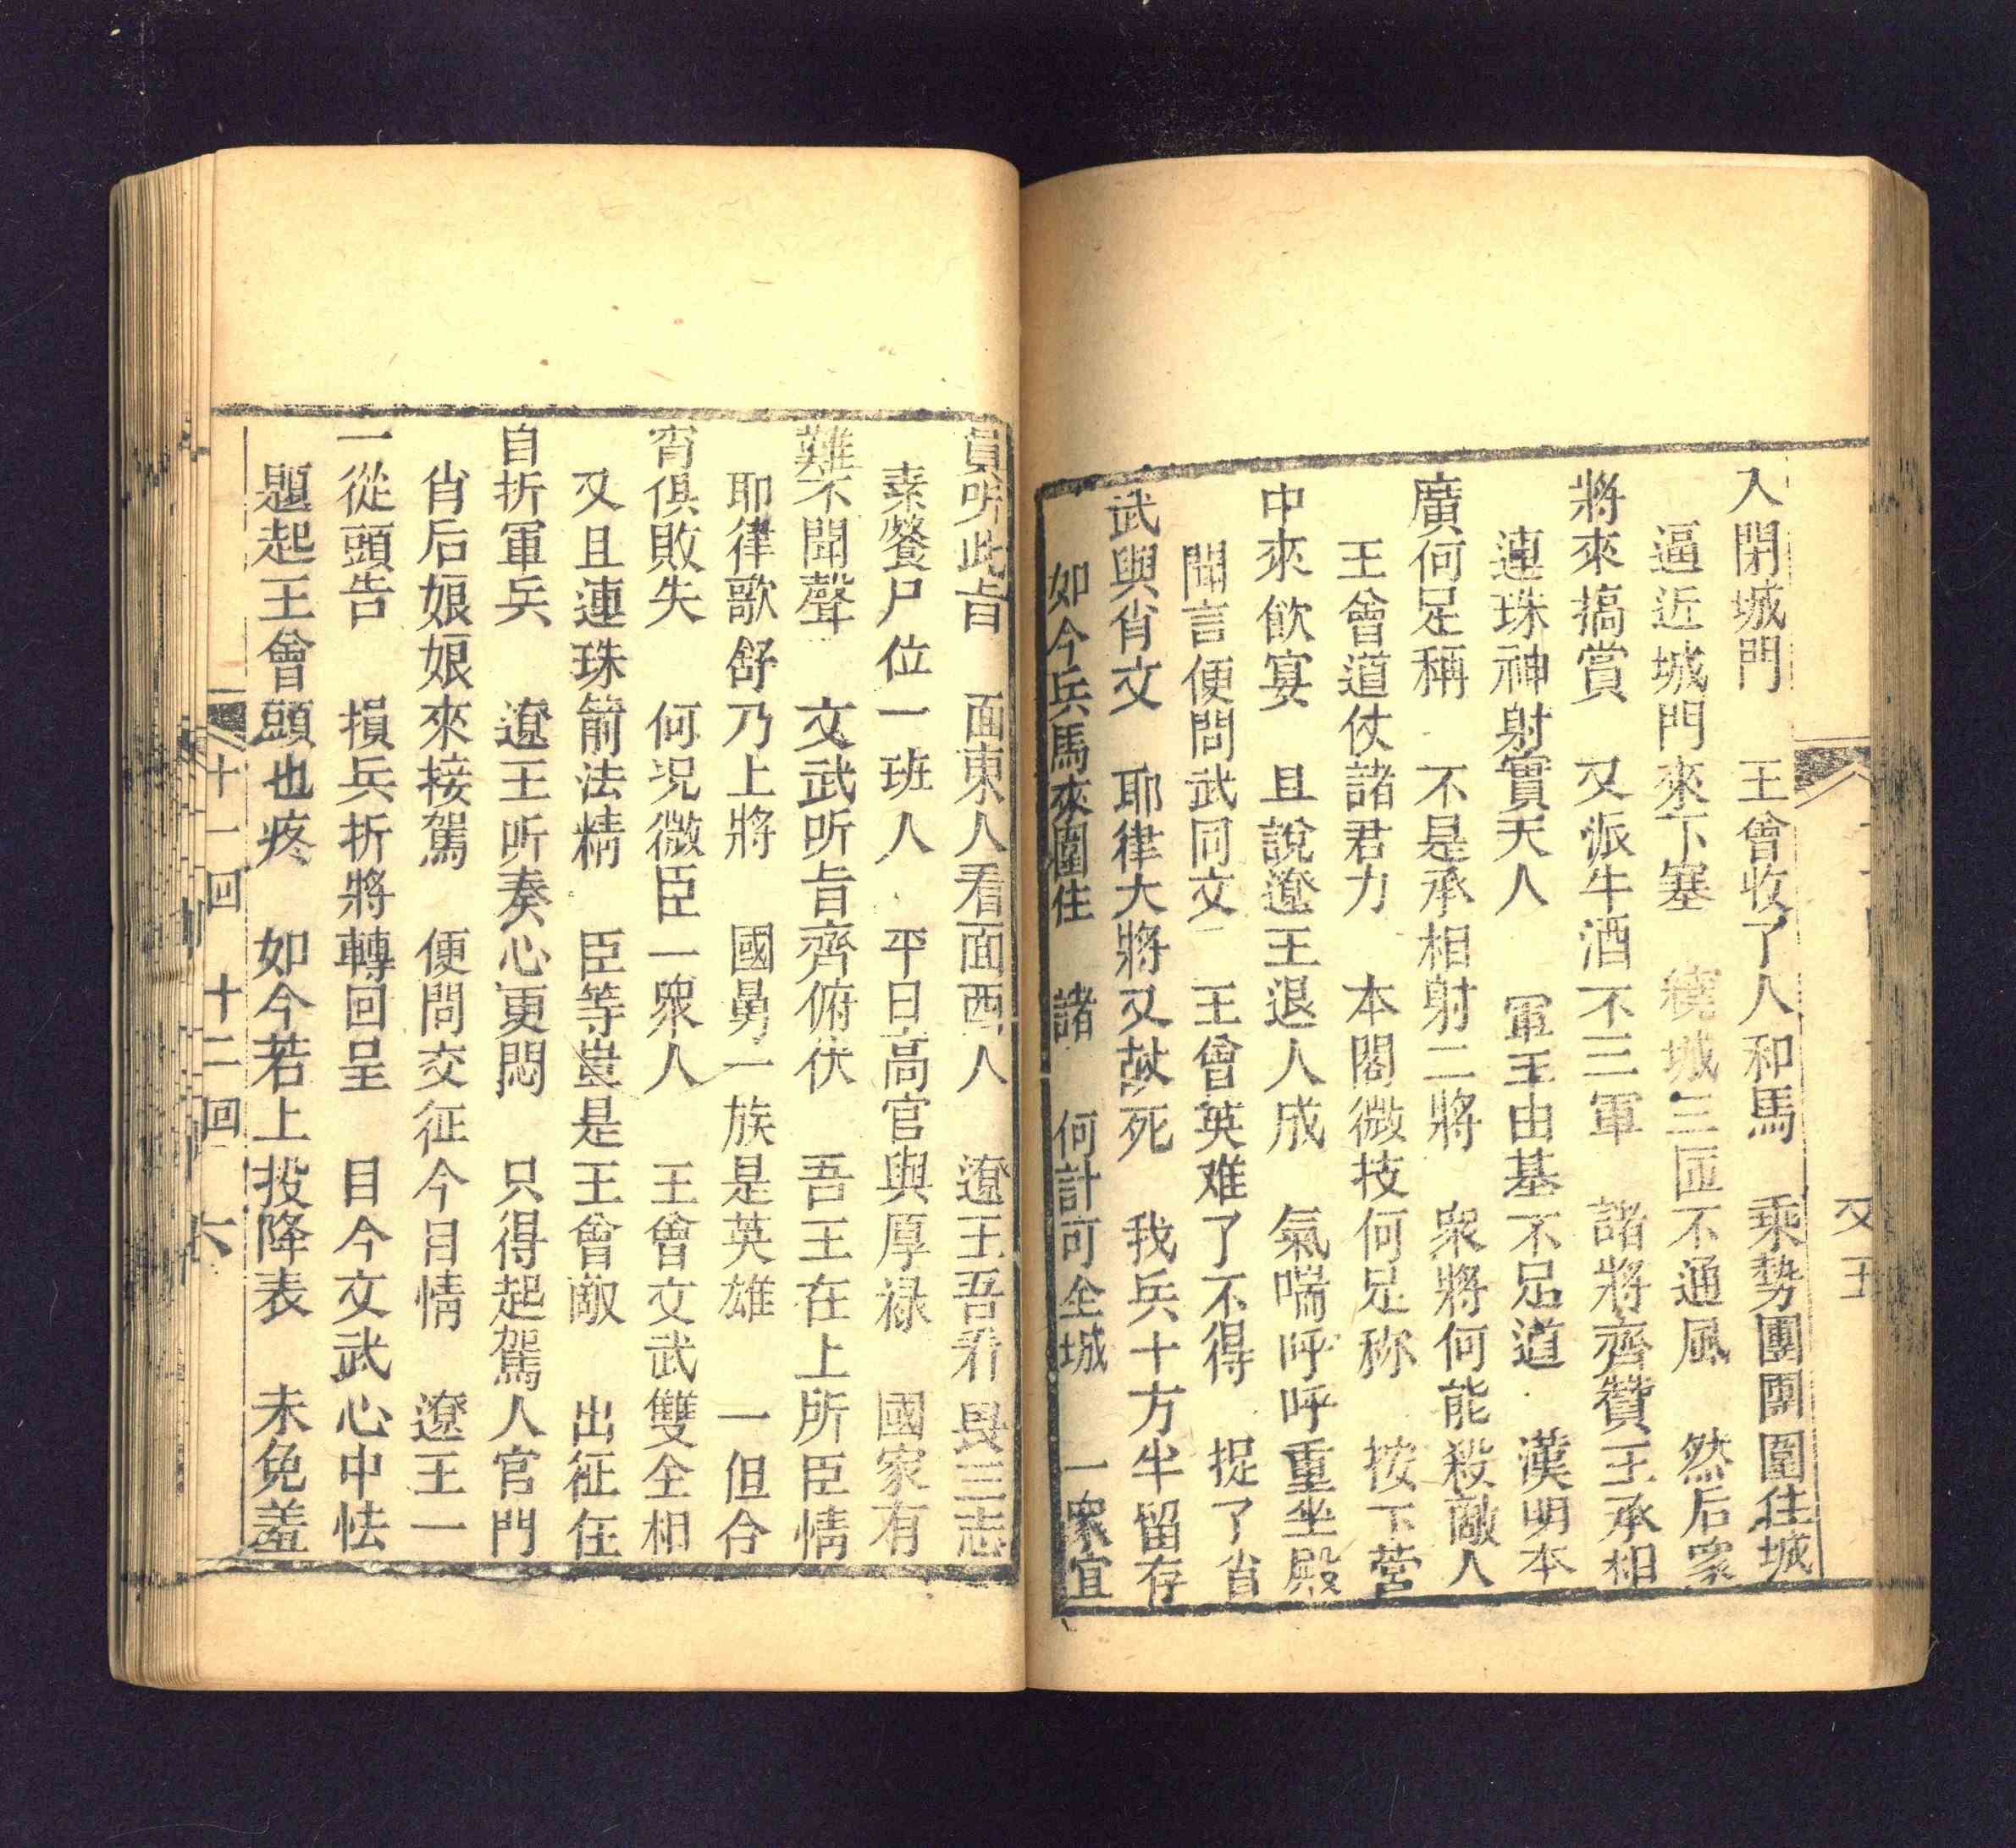 入閉城門　王曾收了人和馬　乘勢團團圍住城
逼近城門來下塞　繞城三匝不通風　然后家
將來搞賞　又派牛酒不三軍　諸將齊贊王承相
連珠神射實天人　軍王由基不足道　漢明本
廣何足稱　不是承相射二將　衆將何能殺敵人
王曾道仗諸君力　本閣微技何足称　按下营
中來飲宴　且說遼王退人成　氣喘呼呼重坐殿
聞言便問武同文　王曾英难了不得　捉了省
武與肖文　耶律大將又 死　我兵十方半留存
如今兵馬來圍住　諸　何計可全城　一衆宜
員听此旨　面東人看面西人　遼王吾看 三志
素餐尸位一班人　平日高官與厚禄　國家有
難不聞聲　文武听旨齊俯伏　吾王在上所臣情
耶律歌舒乃上將　國勇一族是英雄　一但合
宵俱敗失　何况微臣一衆人　王會文武雙全相
又且連珠箭法精　臣等豈是王會敵　出征任
自折軍兵　遼王听奏心更悶　只得起駕人官門
肖后娘娘來接駕　便問交征今目情　遼王一
一從頭告　損兵折將轉回呈　目今文武心中怯
題起王會頭也疼　如今若上投降表　未免羞
十一回 十二回 六